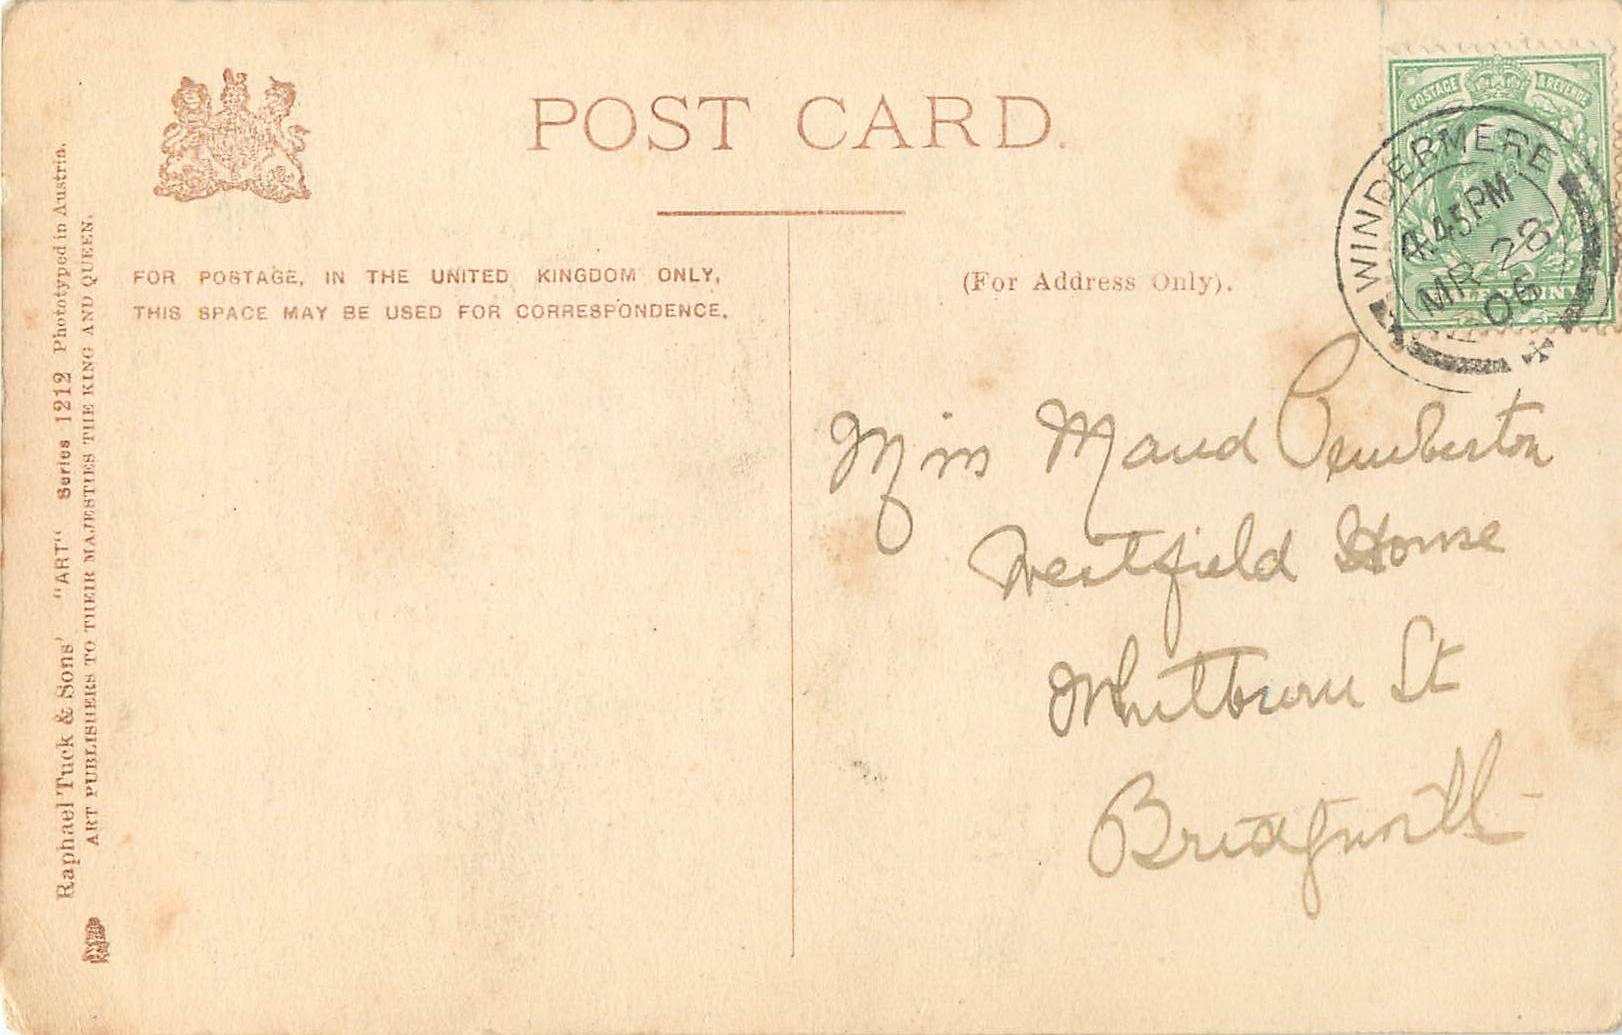 POST CARD.
FOR POSTAGE, IN THE UNITED KINGDOM ONLY,
THIS SPACE MAY BE USED FOR CORRESPONDENCE.
(For Address Only).
POSTAGE & REVENUE
WINDERMERE
4.45PM
MR 28
06
Miss Maud Pemberton
Westfield House
Whitburn St
Bridgnorth
Raphael Tuck & Sons' "ART" Series 1212 Phototyped in Austria.
ART PUBLISHERS TO THEIR MAJESTIES THE KING AND QUEEN.